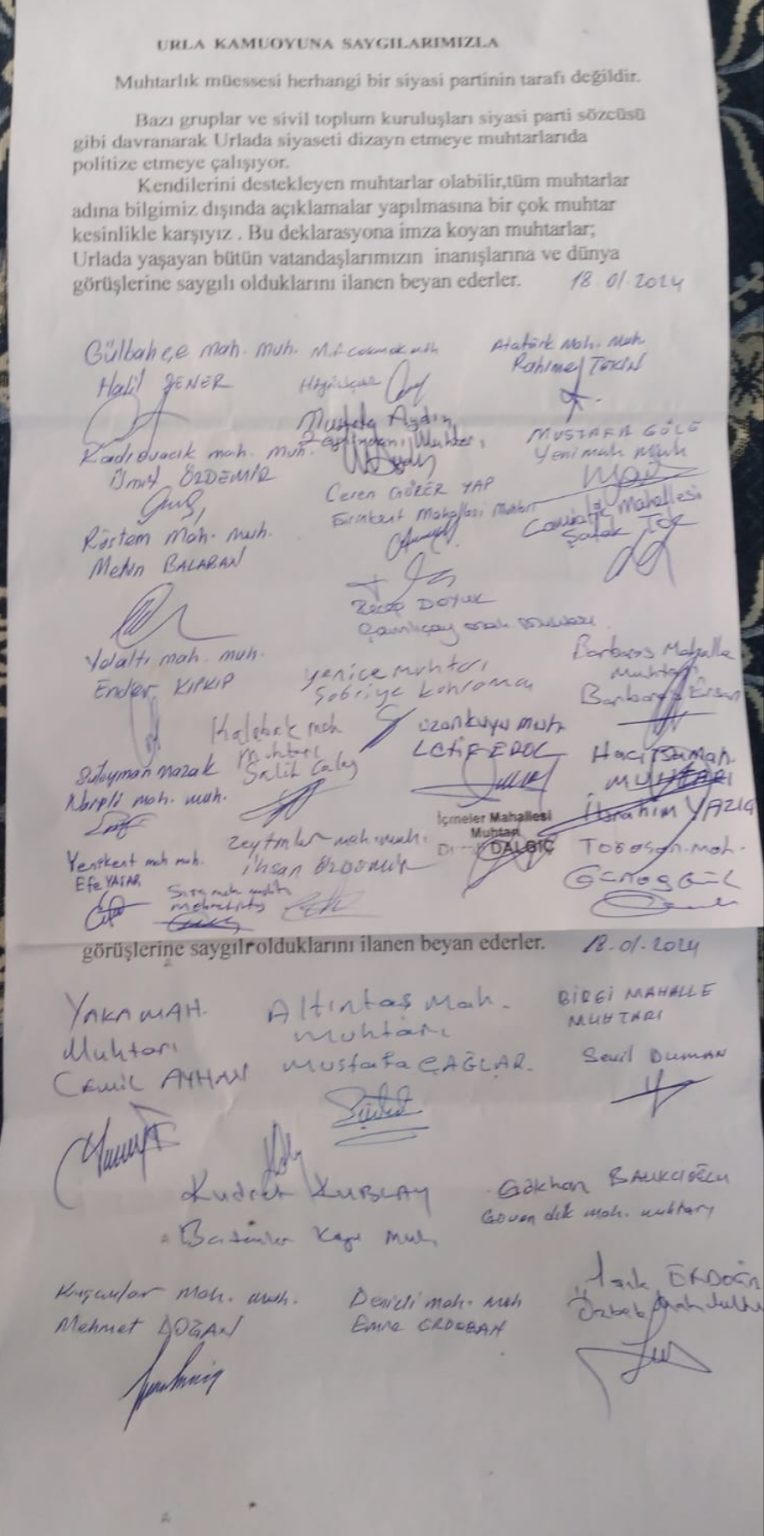 URLA KAMUOYUNA SAYGILARIMIZLA
Muhtarlık müessesi herhangi bir siyasi partinin tarafı değildir.
Bazı gruplar ve sivil toplum kuruluşları siyasi parti sözcüsü
gibi davranarak Urlada siyaseti dizayn etmeye muhtarlarıda
politize etmeye çalışıyor.
Kendilerini destekleyen muhtarlar olabilir,tüm muhtarlar
adına bilgimiz dışında açıklamalar yapılmasına bir çok muhtar
kesinlikle karşıyız . Bu deklarasyona imza koyan muhtarlar;
Urlada yaşayan bütün vatandaşlarımızın inanışlarına ve dünya
görüşlerine saygılı olduklarını ilanen beyan ederler. 18.01.2024
Gülbahçe mah. muh.
Halil ŞENER
Atatürk Mah. Muh.
Rahime TEKİN
Mustafa Aydın
Kadıovacık mah. muh.
Ümit ÖZDEMİR
MUSTAFA GÖLÜ
Yeni mah. Muh
Ceren GÜRER YAP
Mahallesi Muhtarı
Camiatik Mahallesi
Şafak
Rüstem Mah. muh.
Metin BALABAN
Recep DOYUK
Çamlıçay
Yolaltı mah. muh.
Ender KIPKIP
Yenice muhtarı
Sabriye
Barbaros Mahalle
Muhtarı
Kalabak mah
Muhtarı
Salih
Uzunkuyu
LATİF EROL
Hacı İsa mah.
MUHTARI
İbrahim YAZICI
Süleyman
mah. muh.
İçmeler Mahallesi
Muhtarı
DALGIÇ
Zeytinler mah. muh.
İhsan ÖZDEMİR
Torasan mah.
Yenikent mah muh.
Efe YAŞAR
görüşlerine saygılı olduklarını ilanen beyan ederler. 18.01.2024
YAKA MAH.
Muhtarı
Cemil AYHAN
Altıntaş Mah.
muhtarı
Mustafa ÇAĞLAR.
BİRGİ MAHALLE
MUHTARI
Sevil DUMAN
Kudret KUBLAY
Gökhan BALIKÇIOĞLU
Güvendik mah. muhtarı
Kuşçular Mah. muh.
Mehmet DOĞAN
Denizli mah. muh
Emre ERDOĞAN